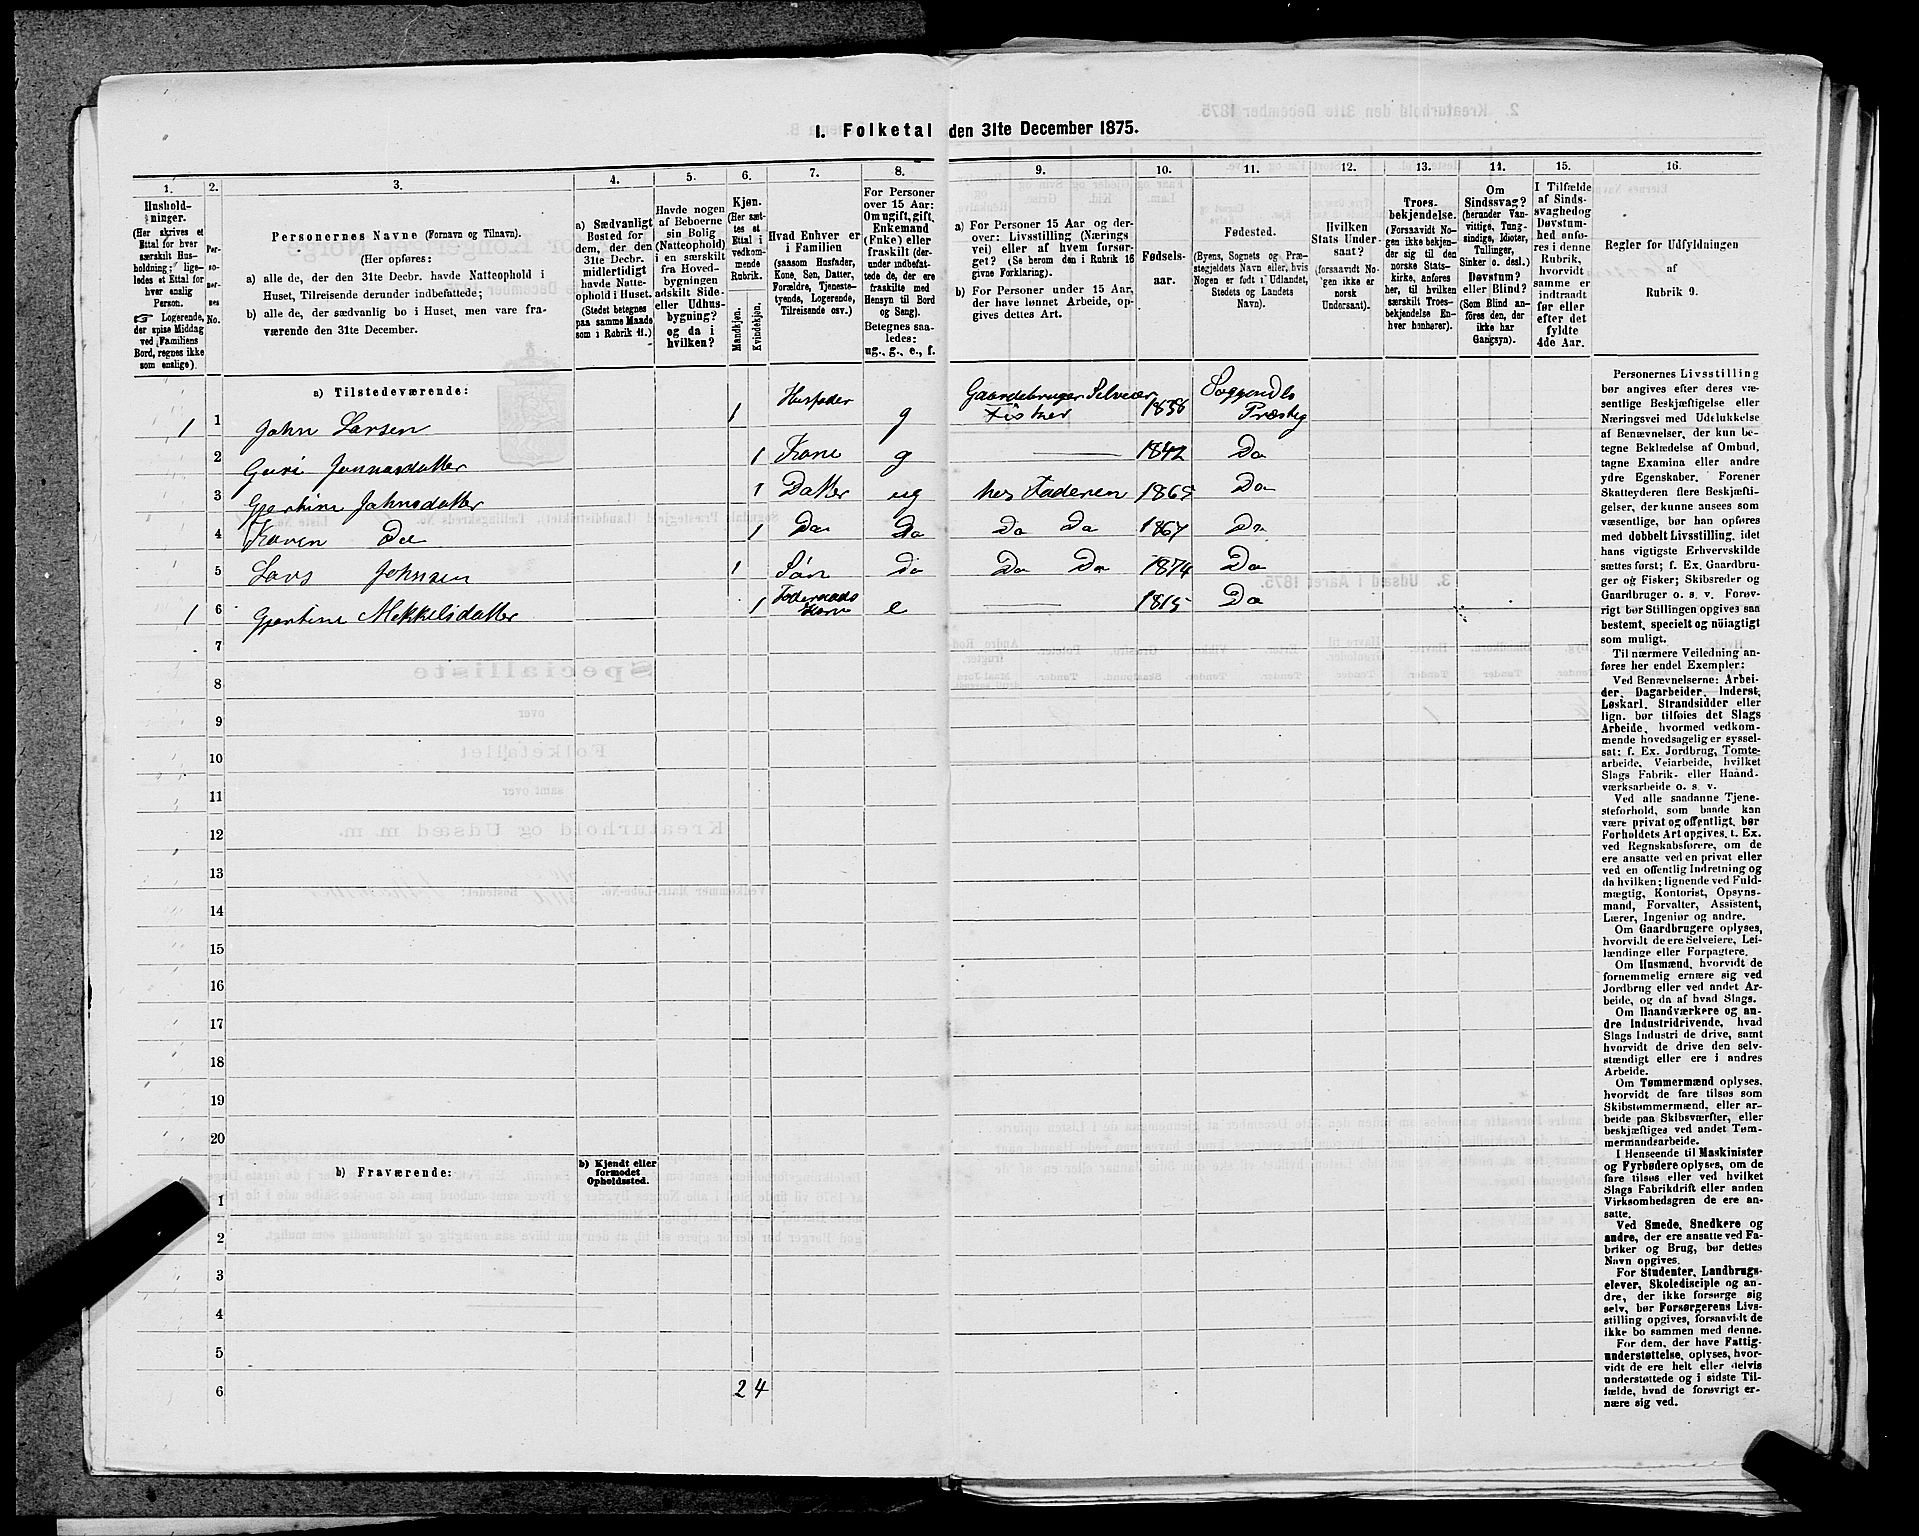 1. Folketal den 31te December 1875.
1. 2. 3. 4. 5. 6. 7. 8. 9. 10. 11. 12. 13. 14. 15. 16.
Hushold-
ninger.
(Her skrives et
Ettal for hver
særskilt Hus-
holdning; lige-
ledes et Ettal for
hver enslig
Person.
☞ Logerende,
der spise Middag
ved Familiens
Bord, regnes ikke
som enslige).
Per-
so-
ner-
nes
No.
Personernes Navne (Fornavn og Tilnavn).
(Her opføres:
a) alle de, der den 31te Decbr. havde Natteophold i
Huset, Tilreisende derunder indbefattede;
b) alle de, der sædvanlig bo i Huset, men vare fra-
værende den 31te December.
a) Sædvanligt
Bosted for
dem, der den
31te Decbr.
midlertidigt
havde Natte-
ophold i Huset.
(Stedet betegnes
paa samme Maade
som i Rubrik 11.)
Havde nogen
af Beboerne
sin Bolig
(Natteophold)
i en særskilt
fra Hoved-
bygningen
adskilt Side-
eller Udhus-
bygning?
og da i
hvilken?
Kjøn.
(Her sæt-
tes et
Ettal i
vedkom-
mende
Rubrik.
Mandkjøn.
Kvindekjøn.
Hvad Enhver er
i Familien
(saasom Husfader,
Kone, Søn, Datter,
Forældre, Tjeneste-
tyende, Logerende,
Tilreisende osv.)
For Personer
over 15 Aar:
Om ugift, gift,
Enkemand
(Enke) eller
fraskilt (der-
under indbefat-
tede de, der ere
fraskilte med
Hensyn til Bord
og Seng).
Betegnes saa-
ledes:
ug., g., e., f.
a) For Personer 15 Aar og der-
over: Livsstilling (Nærings
vei) eller af hvem forsør-
get? (Se herom den i Rubrik 16
givne Forklaring).
b) For Personer under 15 Aar,
der have lønnet Arbeide, op-
gives dettes Art.
Fødsels-
aar.
Fødested.
(Byens, Sognets og Præ-
stegjeldets Navn eller, hvis
Nogen er født i Udlandet,
Stedets og Landets
Navn).
Hvilken
Stats Under-
saat?
(forsaavidt No-
gen ikke er
norsk
Undersaat).
Troes-
bekjendelse.
(Forsaavidt No-
gen ikke bekjen-
der sig til den
norske Stats-
kirke, anføres
her, til hvilken
særskilt Troes-
bekjendelse En-
hver henhører).
Om
Sindssvag?
(herunder Van-
vittige, Tung-
sindige, Idioter,
Tullinger,
Sinker o. desl.)
Døvstum?
eller Blind?
(Som Blind an-
føres den, der
ikke har
Gangsyn).
I Tilfælde
af Sinds-
svaghed og
Døvstum-
hed anfø-
res i denne
Rubrik,
hvorvidt
samme er
indtraadt
før eller
efter det
fyldte
4de Aar.
Regler for Udfyldningen
af
Rubrik 9.
a) Tilstedeværende:
1 1 John Larsen 1 Husfader g Gaardebruger Selveier Fisker 1836 Soggendls Præsteg
2 Guri Jonnasdatter 1 Kone g — 1842 Do
3 Gjertine Johnsdatter 1 Datter ug hos Faderen 1865 Do
4 Karen Do 1 Do Do Do Do 1867 Do
5 Lars Johnsen 1 Søn do Do Do 1874 Do
1 6 Gjertine Mekkelsdatter 1 Foderaads Kone e — 1815 Do
7
8
9
10
11
12
13
14
15
16
17
18
19
20
b) Fraværende:
b) Kjendt eller
formodet
Opholdssted.
1
2
3
4
5
6
2 4
Personernes Livsstilling
bør angives efter deres væ-
sentlige Beskjæftigelse eller
Næringsvei med Udelukkelse
af Benævnelser, der kun be-
tegne Beklædelse af Ombud,
tagne Examina eller andre
ydre Egenskaber. Forener
Skatteyderen flere Beskjæfti-
gelser, der kunne ansees som
væsentlige, bør han opføres
med dobbelt Livsstilling, idet
hans vigtigste Erhvervskilde
sættes først; f. Ex. Gaardbru-
ger og Fisker; Skibsreder og
Gaardbruger o. s. v. Forøv-
rigt bør Stillingen opgives saa
bestemt, specielt og nöiagtigt
som muligt.
Til nærmere Veiledning an-
føres her endel Exempler:
Ved Benævnelserne: Arbei-
der, Dagarbeider, Inderst,
Løskarl, Strandsidder eller
lign. bør tilføies det Slags
Arbeide, hvormed vedkom-
mende hovedsagelig er syssel-
sat; f. Ex. Jordbrug, Tomte-
arbeide, Veiarbeide, hvilket
Slags Fabrik- eller Haand-
værksarbeide o. s. v.
Ved alle saadanne Tjene-
steforhold, som baade kan
være privat og offentligt, bør
Forholdets Art opgives, t. Ex.
ved Regnskabsførere, om de
ere ansatte ved en privat eller
ved en offentlig Indretning og
da hvilken; lignende ved Fuld-
mægtig, Kontorist, Opsyns-
mand, Forvalter, Assistent,
Lærer, Ingeniør og andre.
Om Gaardbrugere oplyses,
hvorvidt de ere Selveiere, Lei-
lændinge eller Forpagtere.
Om Husmænd, hvorvidt de
fornemmelig ernære sig ved
Jordbrug eller ved andet Ar-
beide, og da af hvad Slags.
Om Haandværkere og an-
dre Industridrivende, hvad
Slags Industri de drive, samt
hvorvidt de drive den selv-
stændigt eller ere i andres
Arbeide.
Om Tømmermænd oplyses,
hvorvidt de fare tilsøs som
Skibstømmermænd, eller ar-
beide paa Skibsværfter, eller
beskjæftiges ved andet Tøm-
mermandsarbeide.
I Henseende til Maskinister
og Fyrbødere oplyses, om de
fare tilsøs eller ved hvilket
Slags Fabrikdrift eller anden
Virksomhedsgren de ere an-
satte.
Ved Smede, Snedkere og
andre, der ere ansatte ved Fa-
briker og Brug, bør dettes
Navn opgives.
For Studenter, Landbrugs-
elever, Skoledisciple og an-
dre, der ikke forsørge sig
selv, bør Forsørgerens Livs-
stilling opgives, forsaavidt de
ikke bo sammen med denne.
For dem, der have Fattig-
understøttelse, oplyses, hvor-
vidt de ere helt eller delvis
understøttede og i sidste Til-
fælde, hvad de forøvrigt er-
nære sig ved.